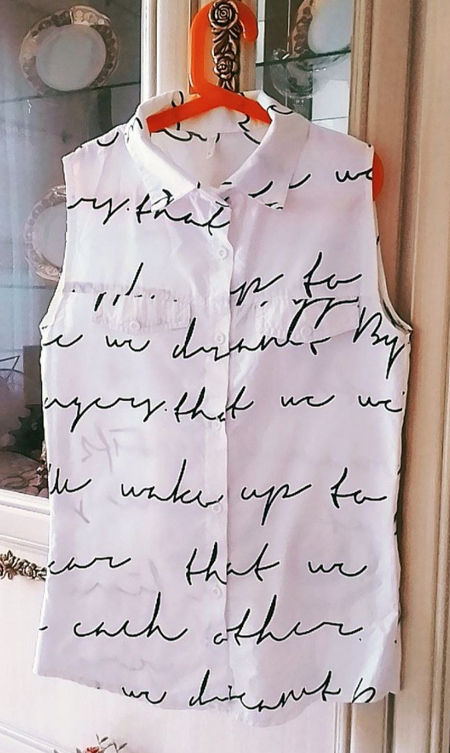 we
ry. that
up to
we dreamt By
ngery. that we we
wake up to
ear that we
each other.
we dreamt b